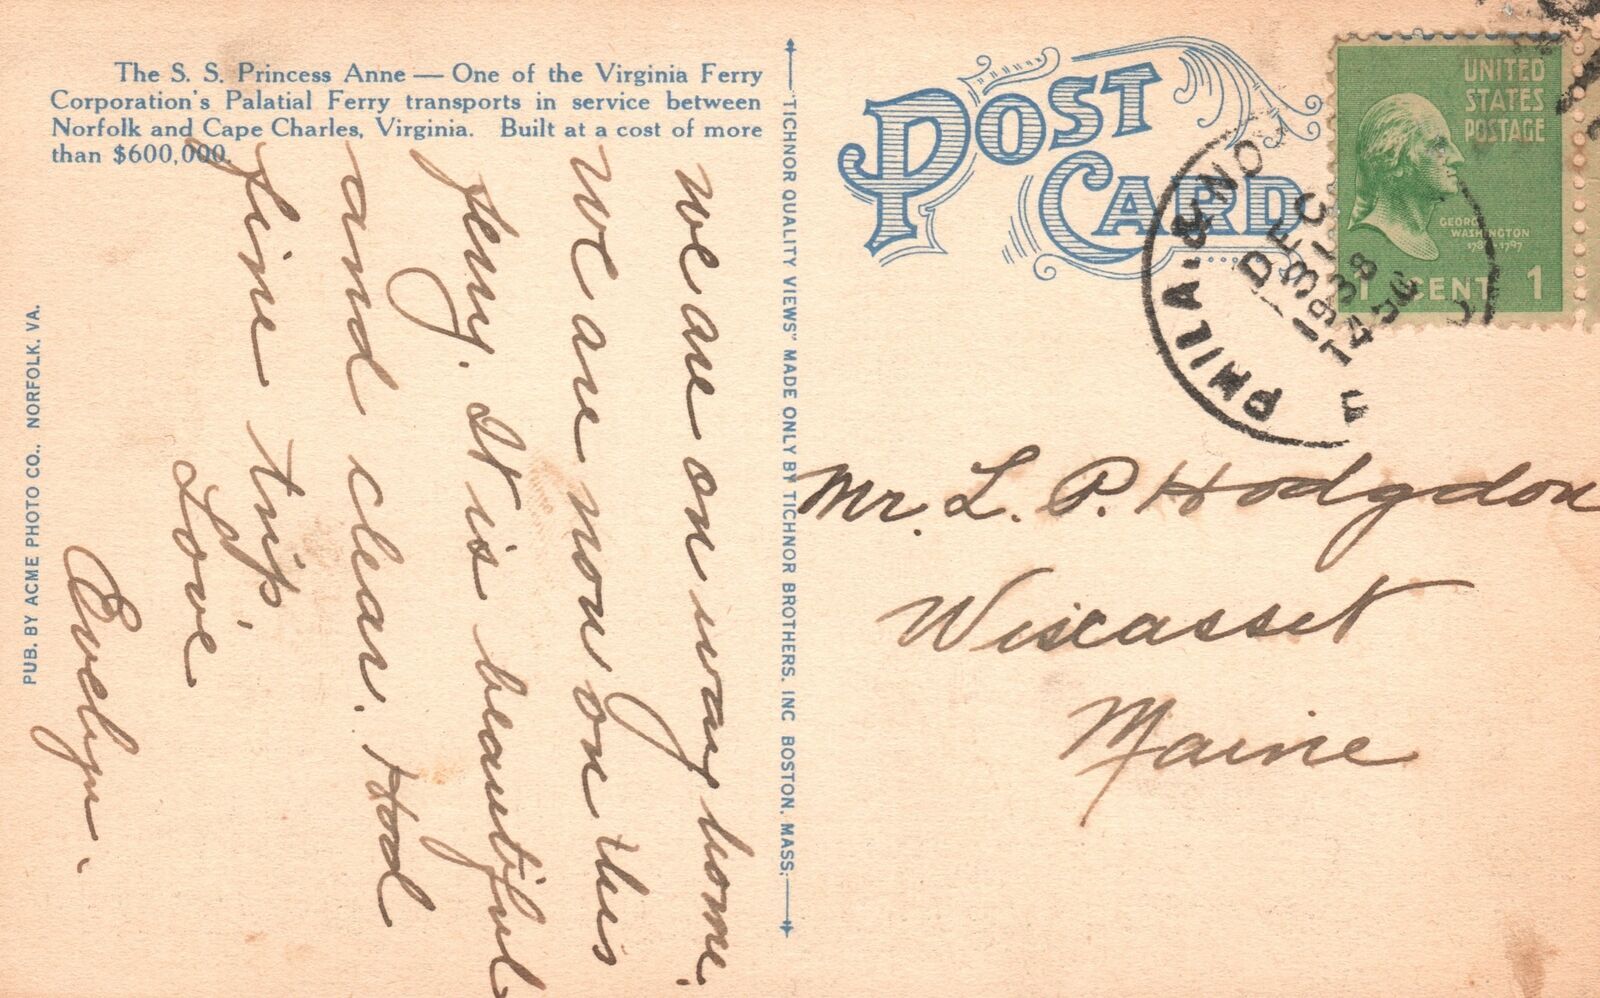 The S. S. Princess Anne — One of the Virginia Ferry
Corporation's Palatial Ferry transports in service between
Norfolk and Cape Charles, Virginia. Built at a cost of more
than $600,000.
we are on way home.
We are now on this
ferry. It is beautiful
and clear. Had
fine trip.
Love
Evelyn.
PUB. BY ACME PHOTO CO., NORFOLK, VA.
"TICHNOR QUALITY VIEWS" MADE ONLY BY TICHNOR BROTHERS, INC BOSTON, MASS.
POST CARD
UNITED
STATES
POSTAGE
GEORGE
WASHINGTON
1789-1797
1 CENT 1
PHILA. & NO
DEC
31
1938
Mr. L. P. Hodgdon
Wiscasset
Maine